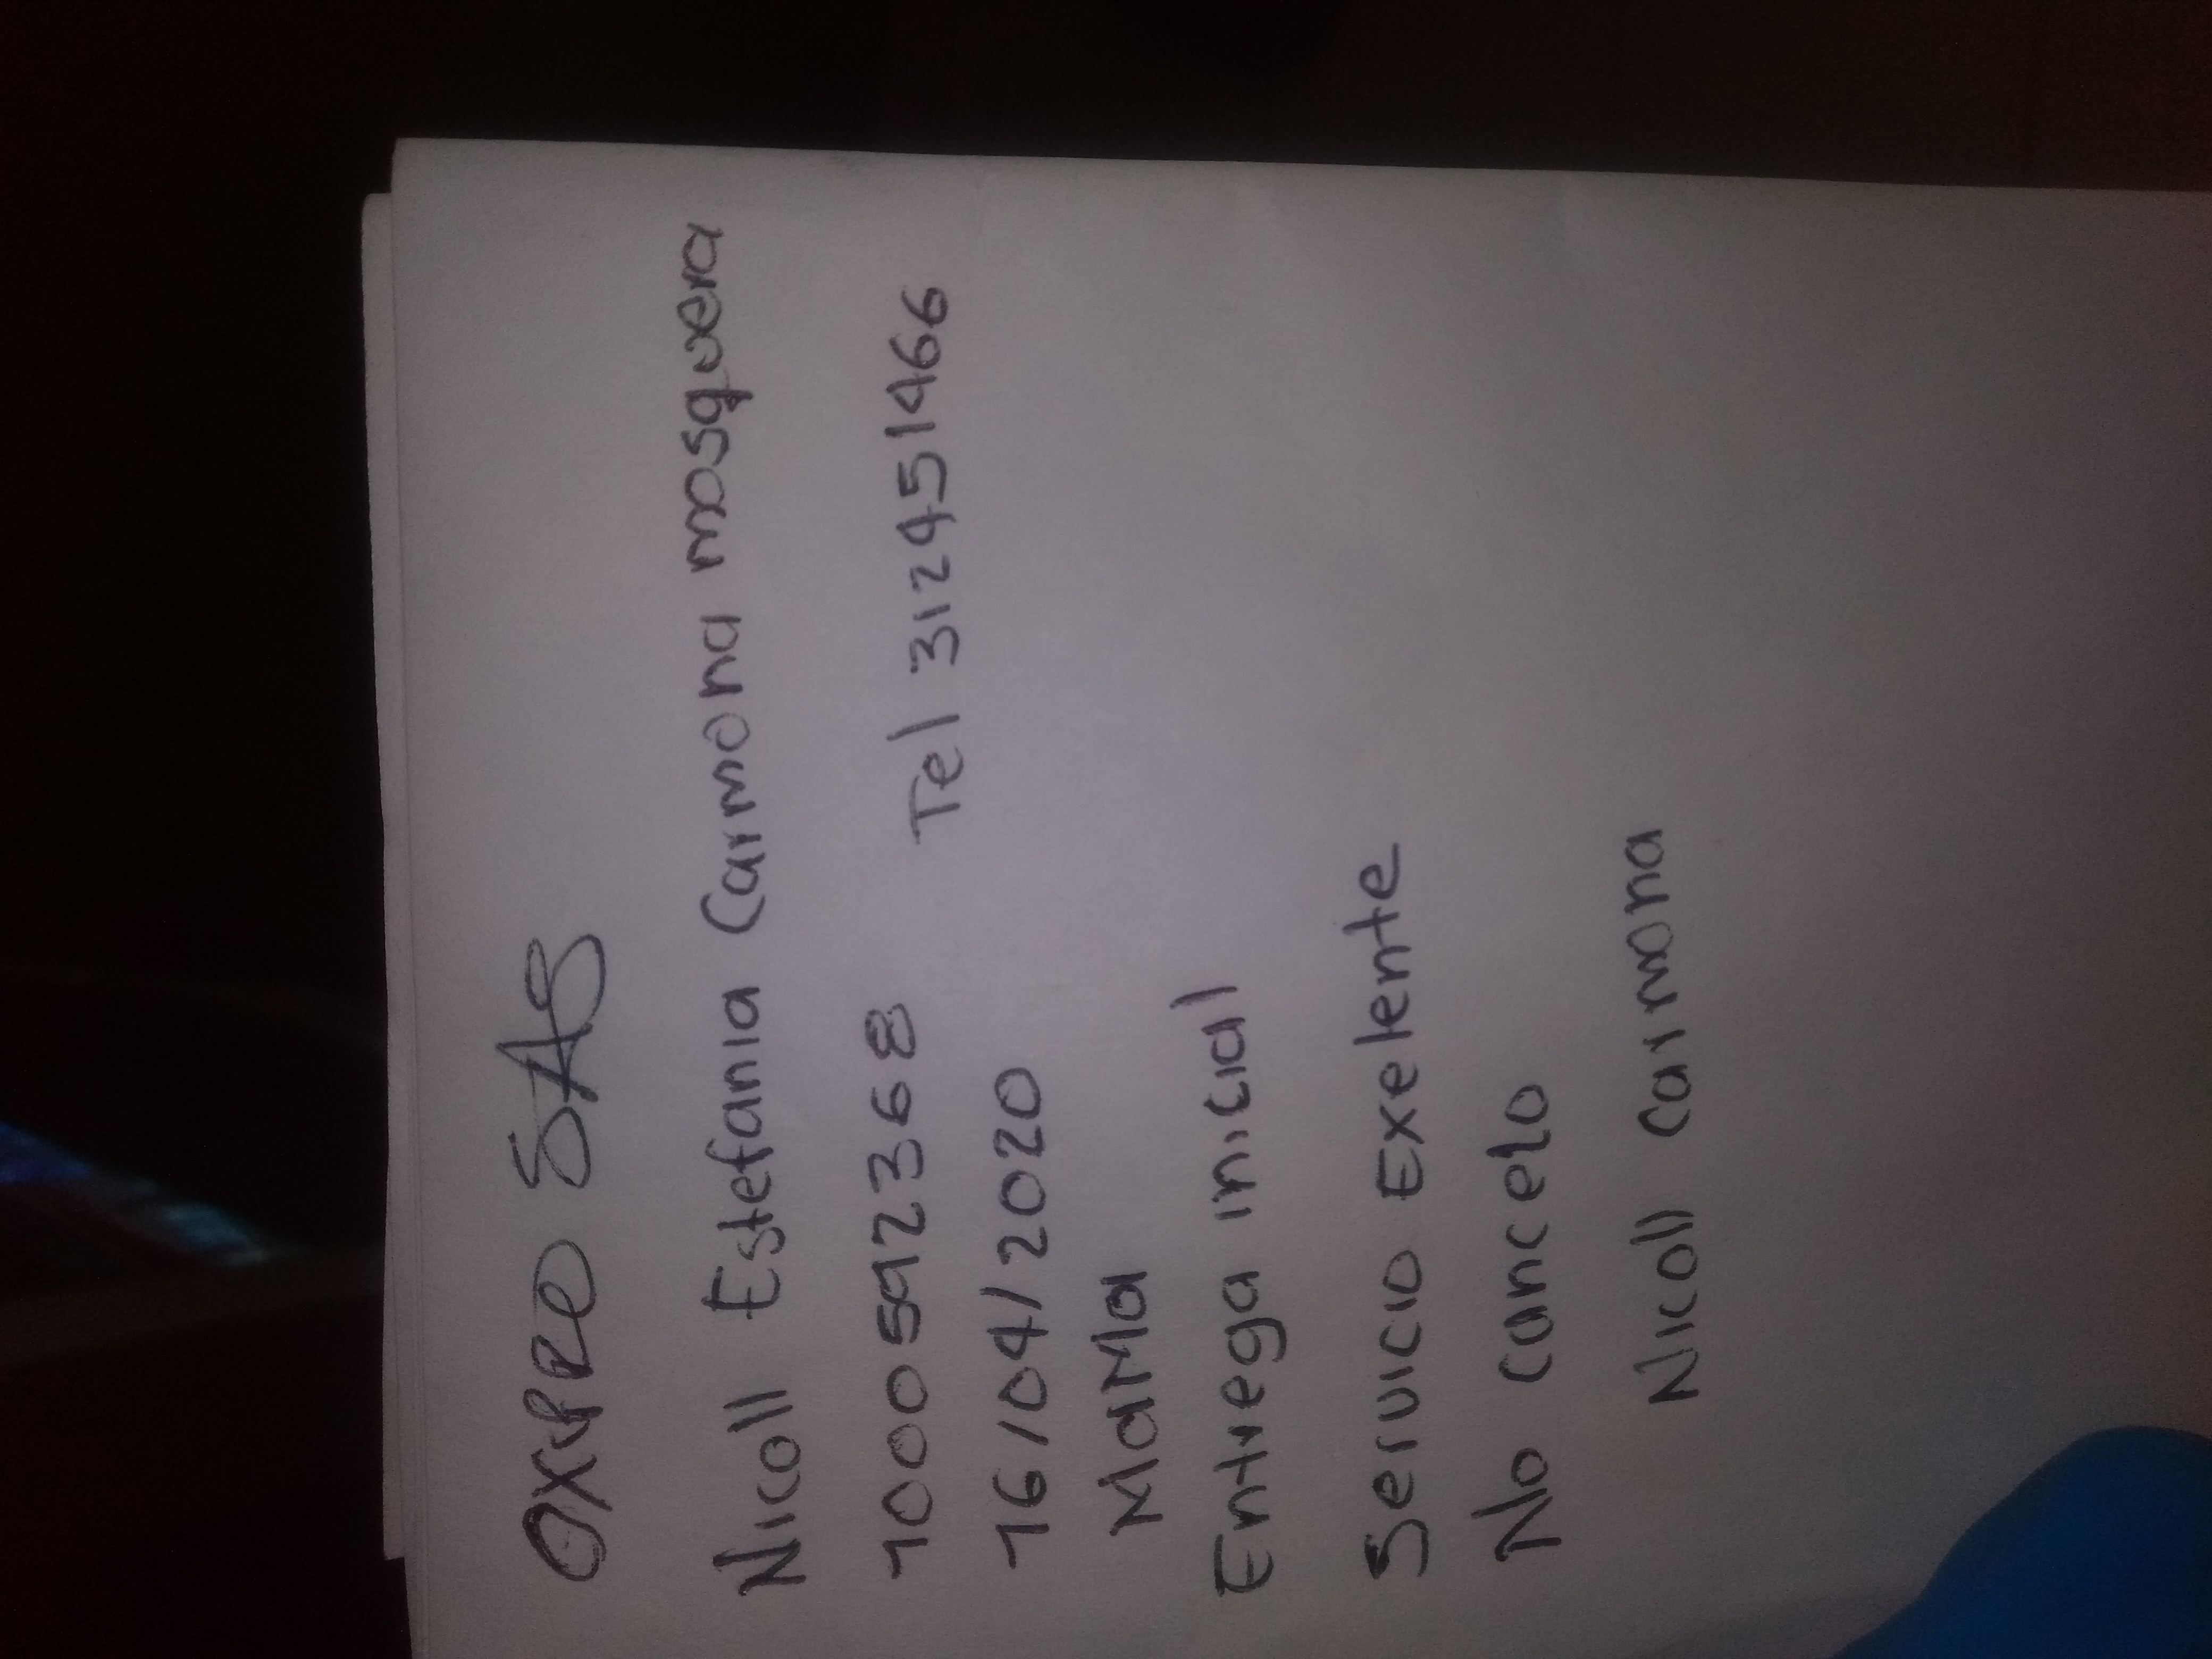 OXIPRO SAS
Nicoll Estefania Carmona mosquera
1000592368 Tel 312451466
16/04/2020
MaMa
Entrega inicial
Servicio Exelente
No cancelo
Nicoll Carmona